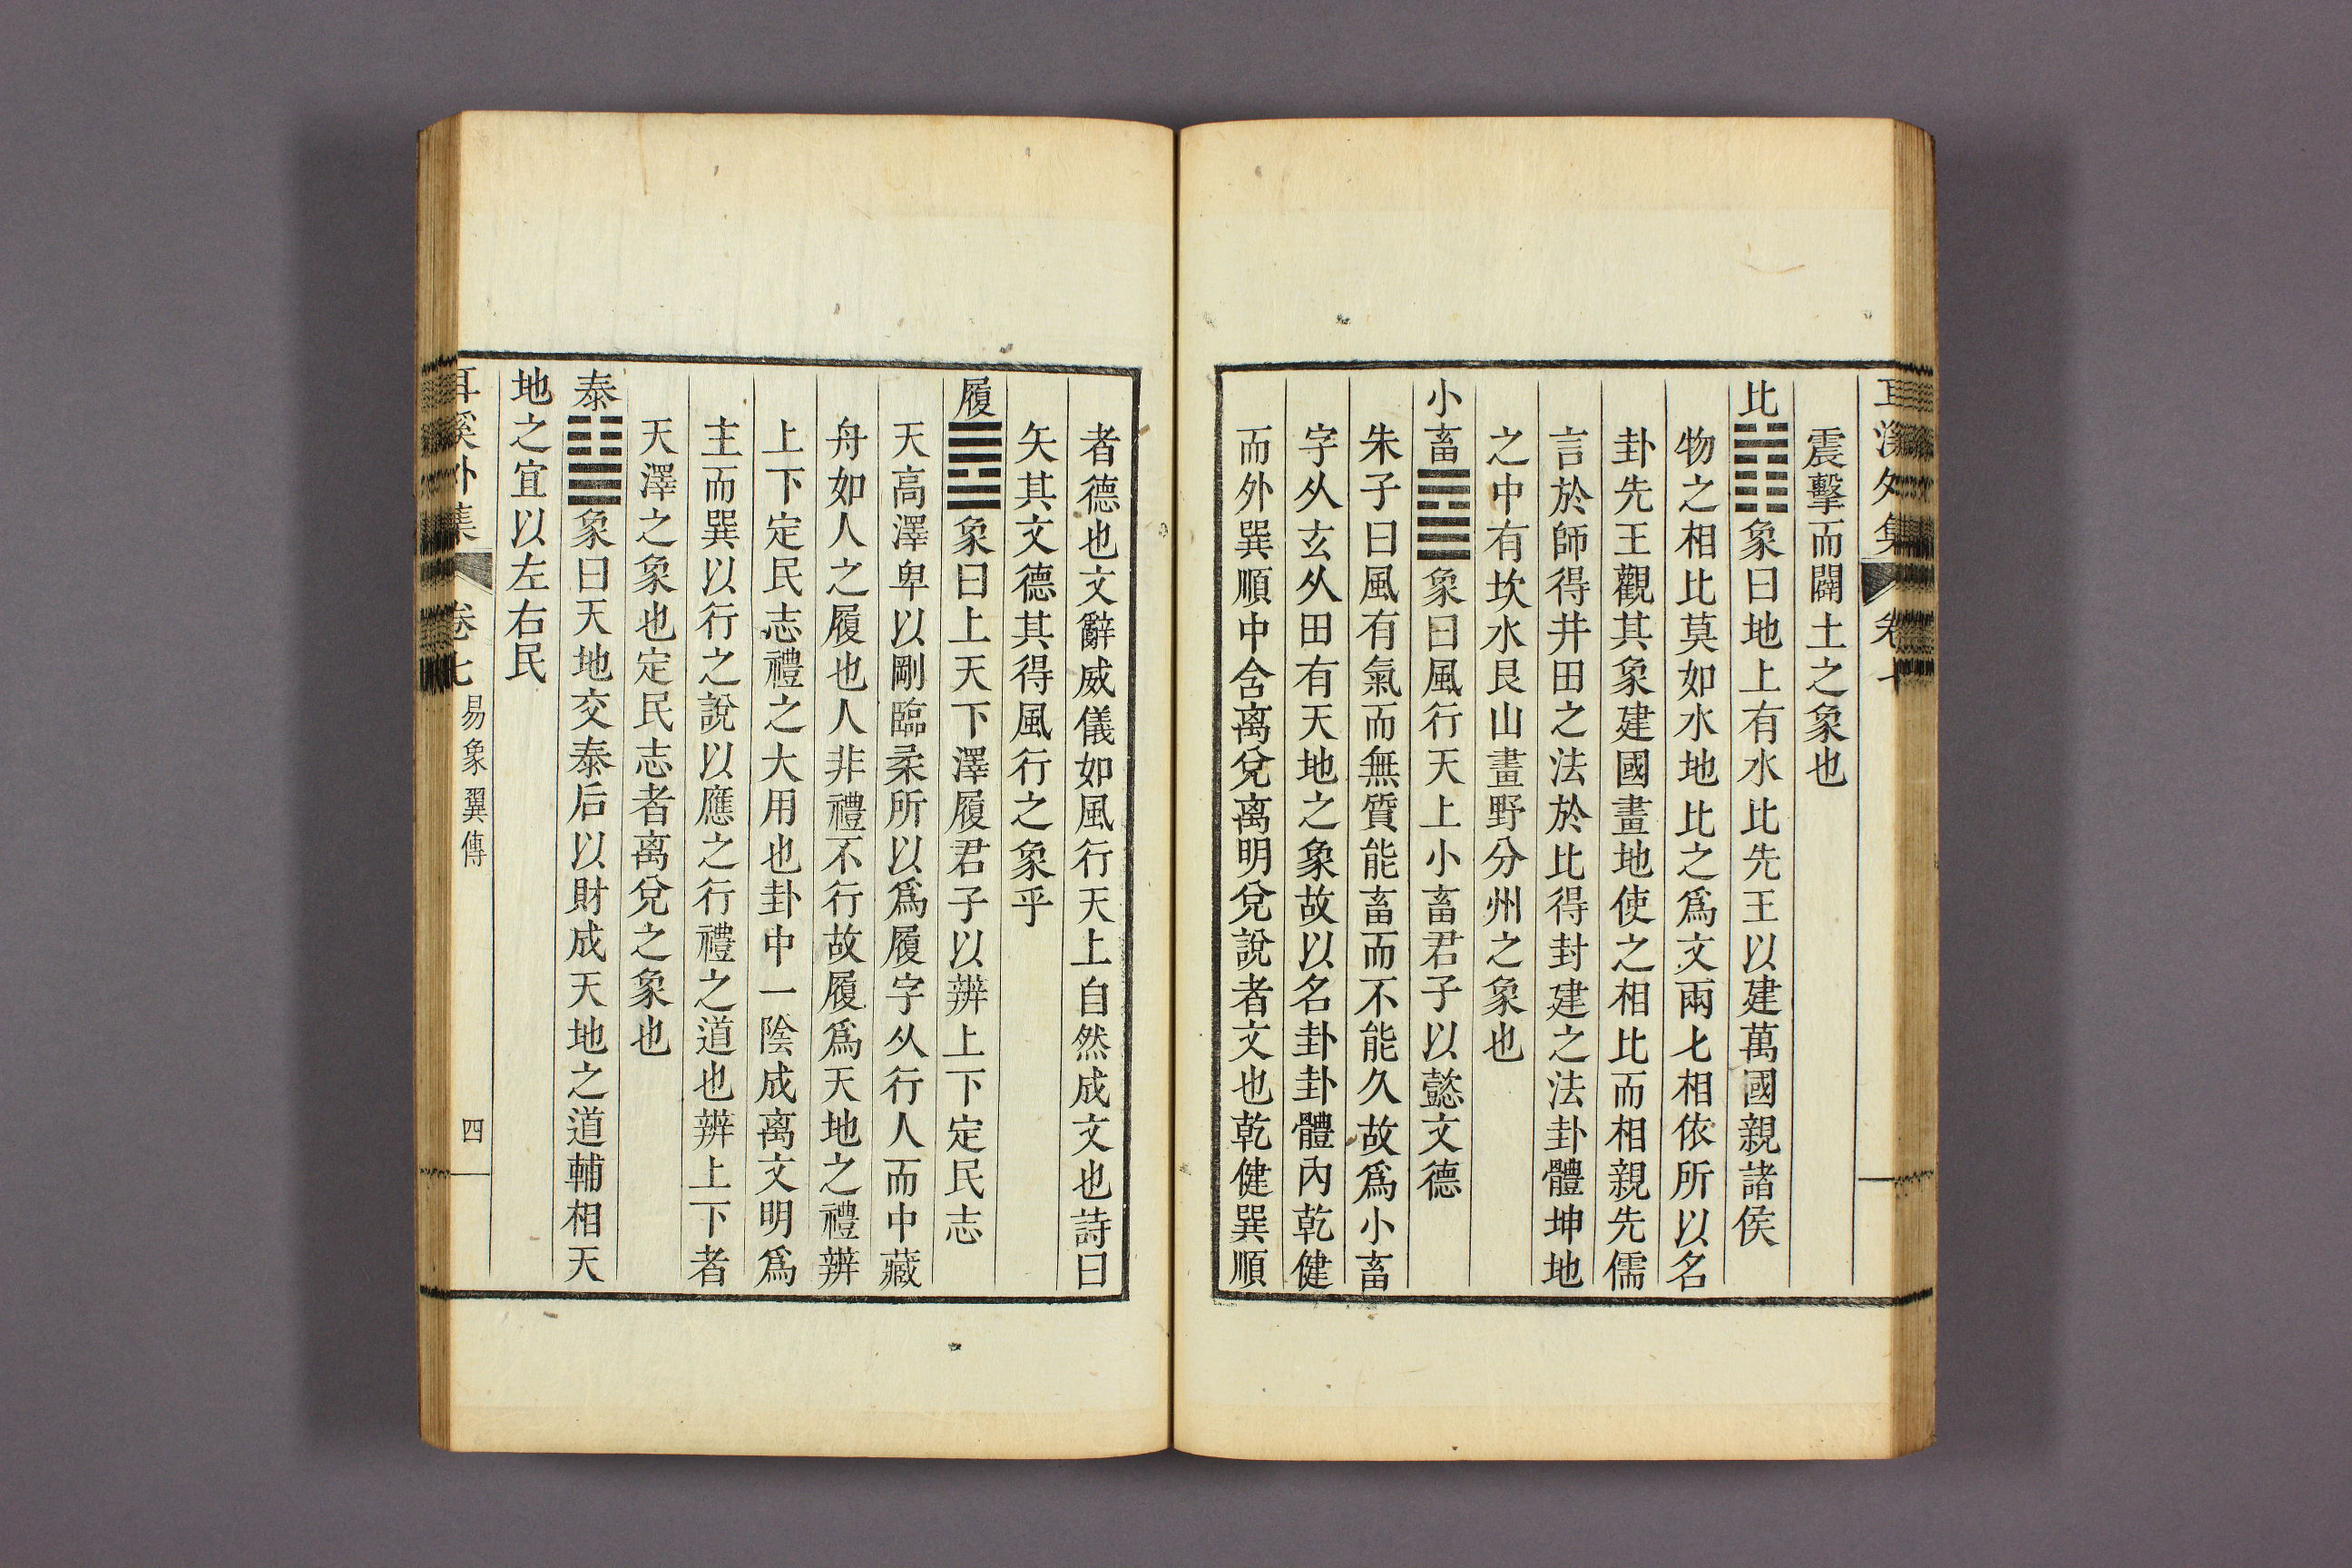 震擊而闢土之象也
比䷇象曰地上有水比先王以建萬國親諸侯
物之相比莫如水地比之爲文兩匕相依所以名
卦先王觀其象建國畫地使之相比而相親先儒
言於師得井田之法於比得封建之法卦體坤地
之中有坎水艮山畫野分州之象也
小畜䷈象曰風行天上小畜君子以懿文德
朱子曰風有氣而無質能畜而不能久故爲小畜
字从玄从田有天地之象故以名卦卦體內乾健
而外巽順中含离兌离明兌說者文也乾健巽順
者德也文辭威儀如風行天上自然成文也詩曰
矢其文德其得風行之象乎
履䷉象曰上天下澤履君子以辨上下定民志
天高澤卑以剛臨柔所以爲履字从行人而中藏
舟如人之履也人非禮不行故履爲天地之禮辨
上下定民志禮之大用也卦中一陰成离文明爲
主而巽以行之說以應之行禮之道也辨上下者
天澤之象也定民志者离兌之象也
泰䷊象曰天地交泰后以財成天地之道輔相天
地之宜以左右民
耳溪外集 卷七 易象翼傳 四